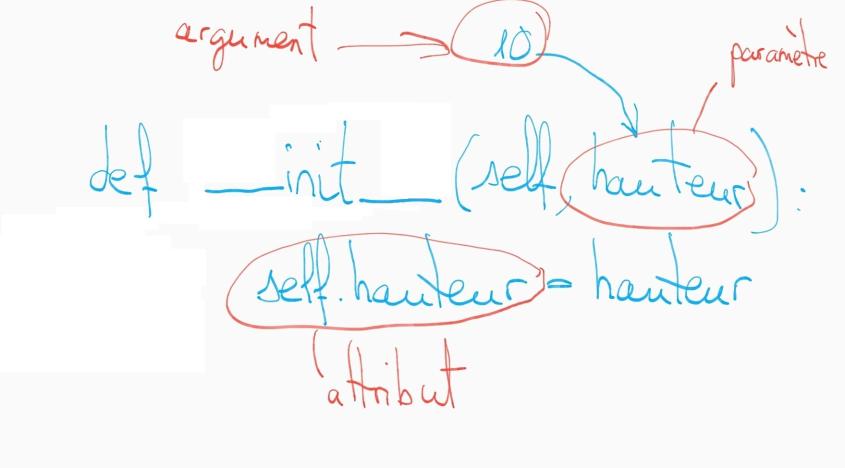 argument 10 paramètre
def __init__(self, hauteur):
self.hauteur = hauteur
attribut